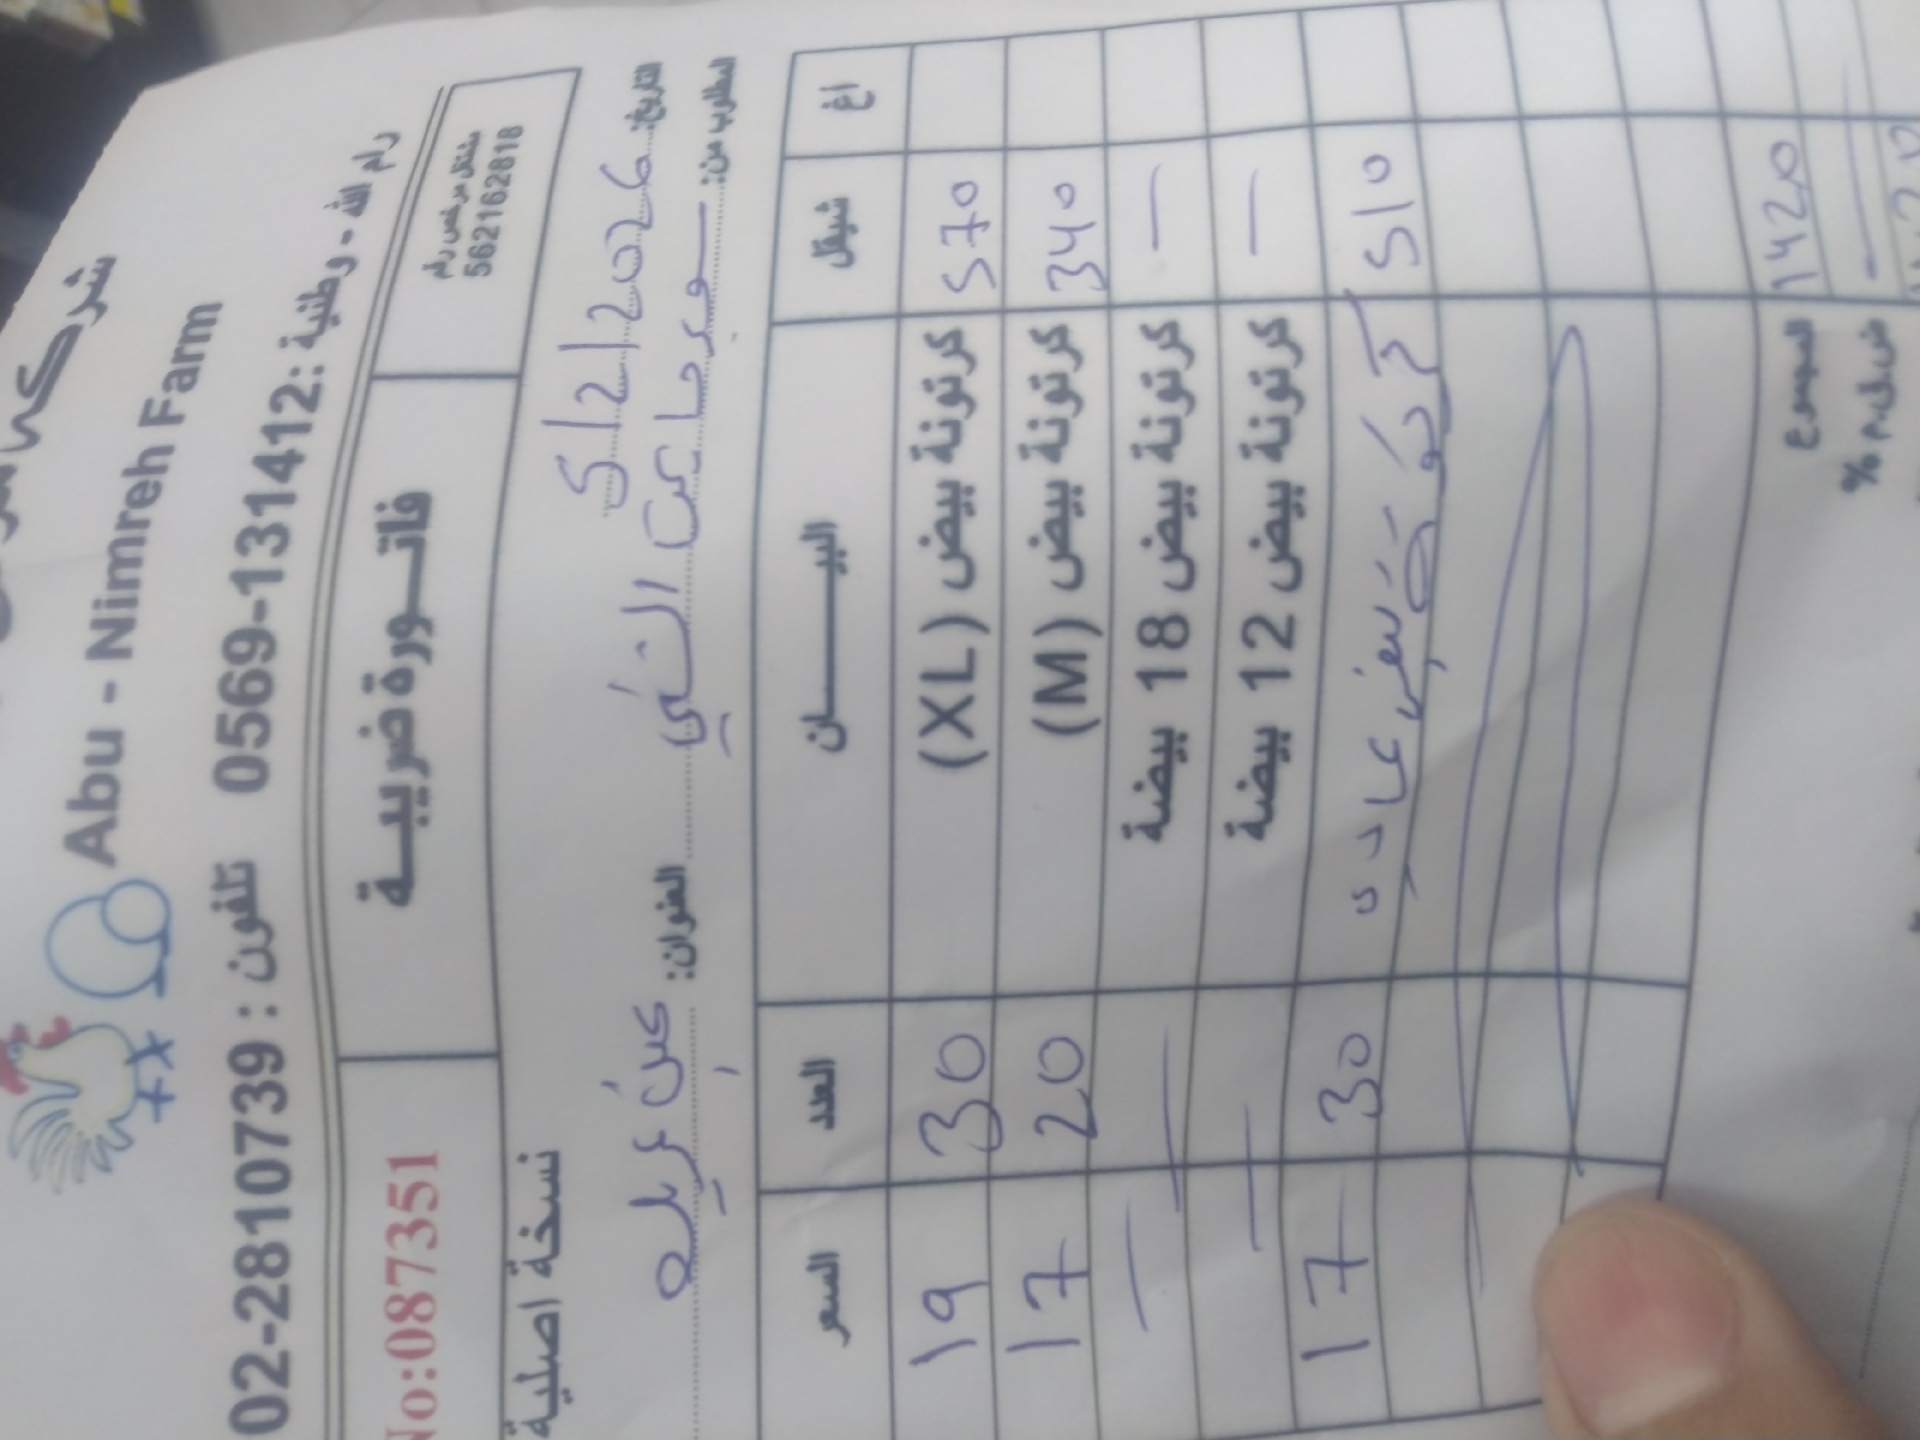 شركة
Abu - Nimreh Farm
رام الله - وطنية : 0569-131412 تلفون : 02-2810739
مشتغل مرخص رقم
562162818
فاتورة ضريبية
No:087351
نسخة اصلية
التاريخ: 5/2/2026
المطلوب من: العنوان:
أغ شيقل البيان العدد السعر
570 كرتونة بيض (XL) 30 19
340 كرتونة بيض (M) 20 17
— كرتونة بيض 18 بيضة — —
— كرتونة بيض 12 بيضة —
510 بيض عادي 30 17
1420 المجموع
— ض.ق.م %